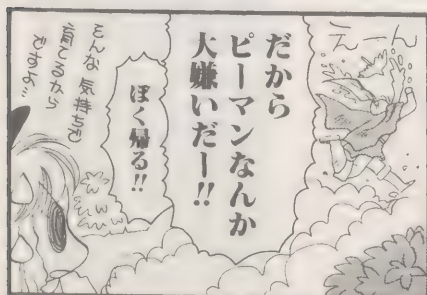 えーん
だから
ピーマンなんか
大嫌いだー!!
ぼく帰る!!
そんな気持ちで
育てるから
ですよ…